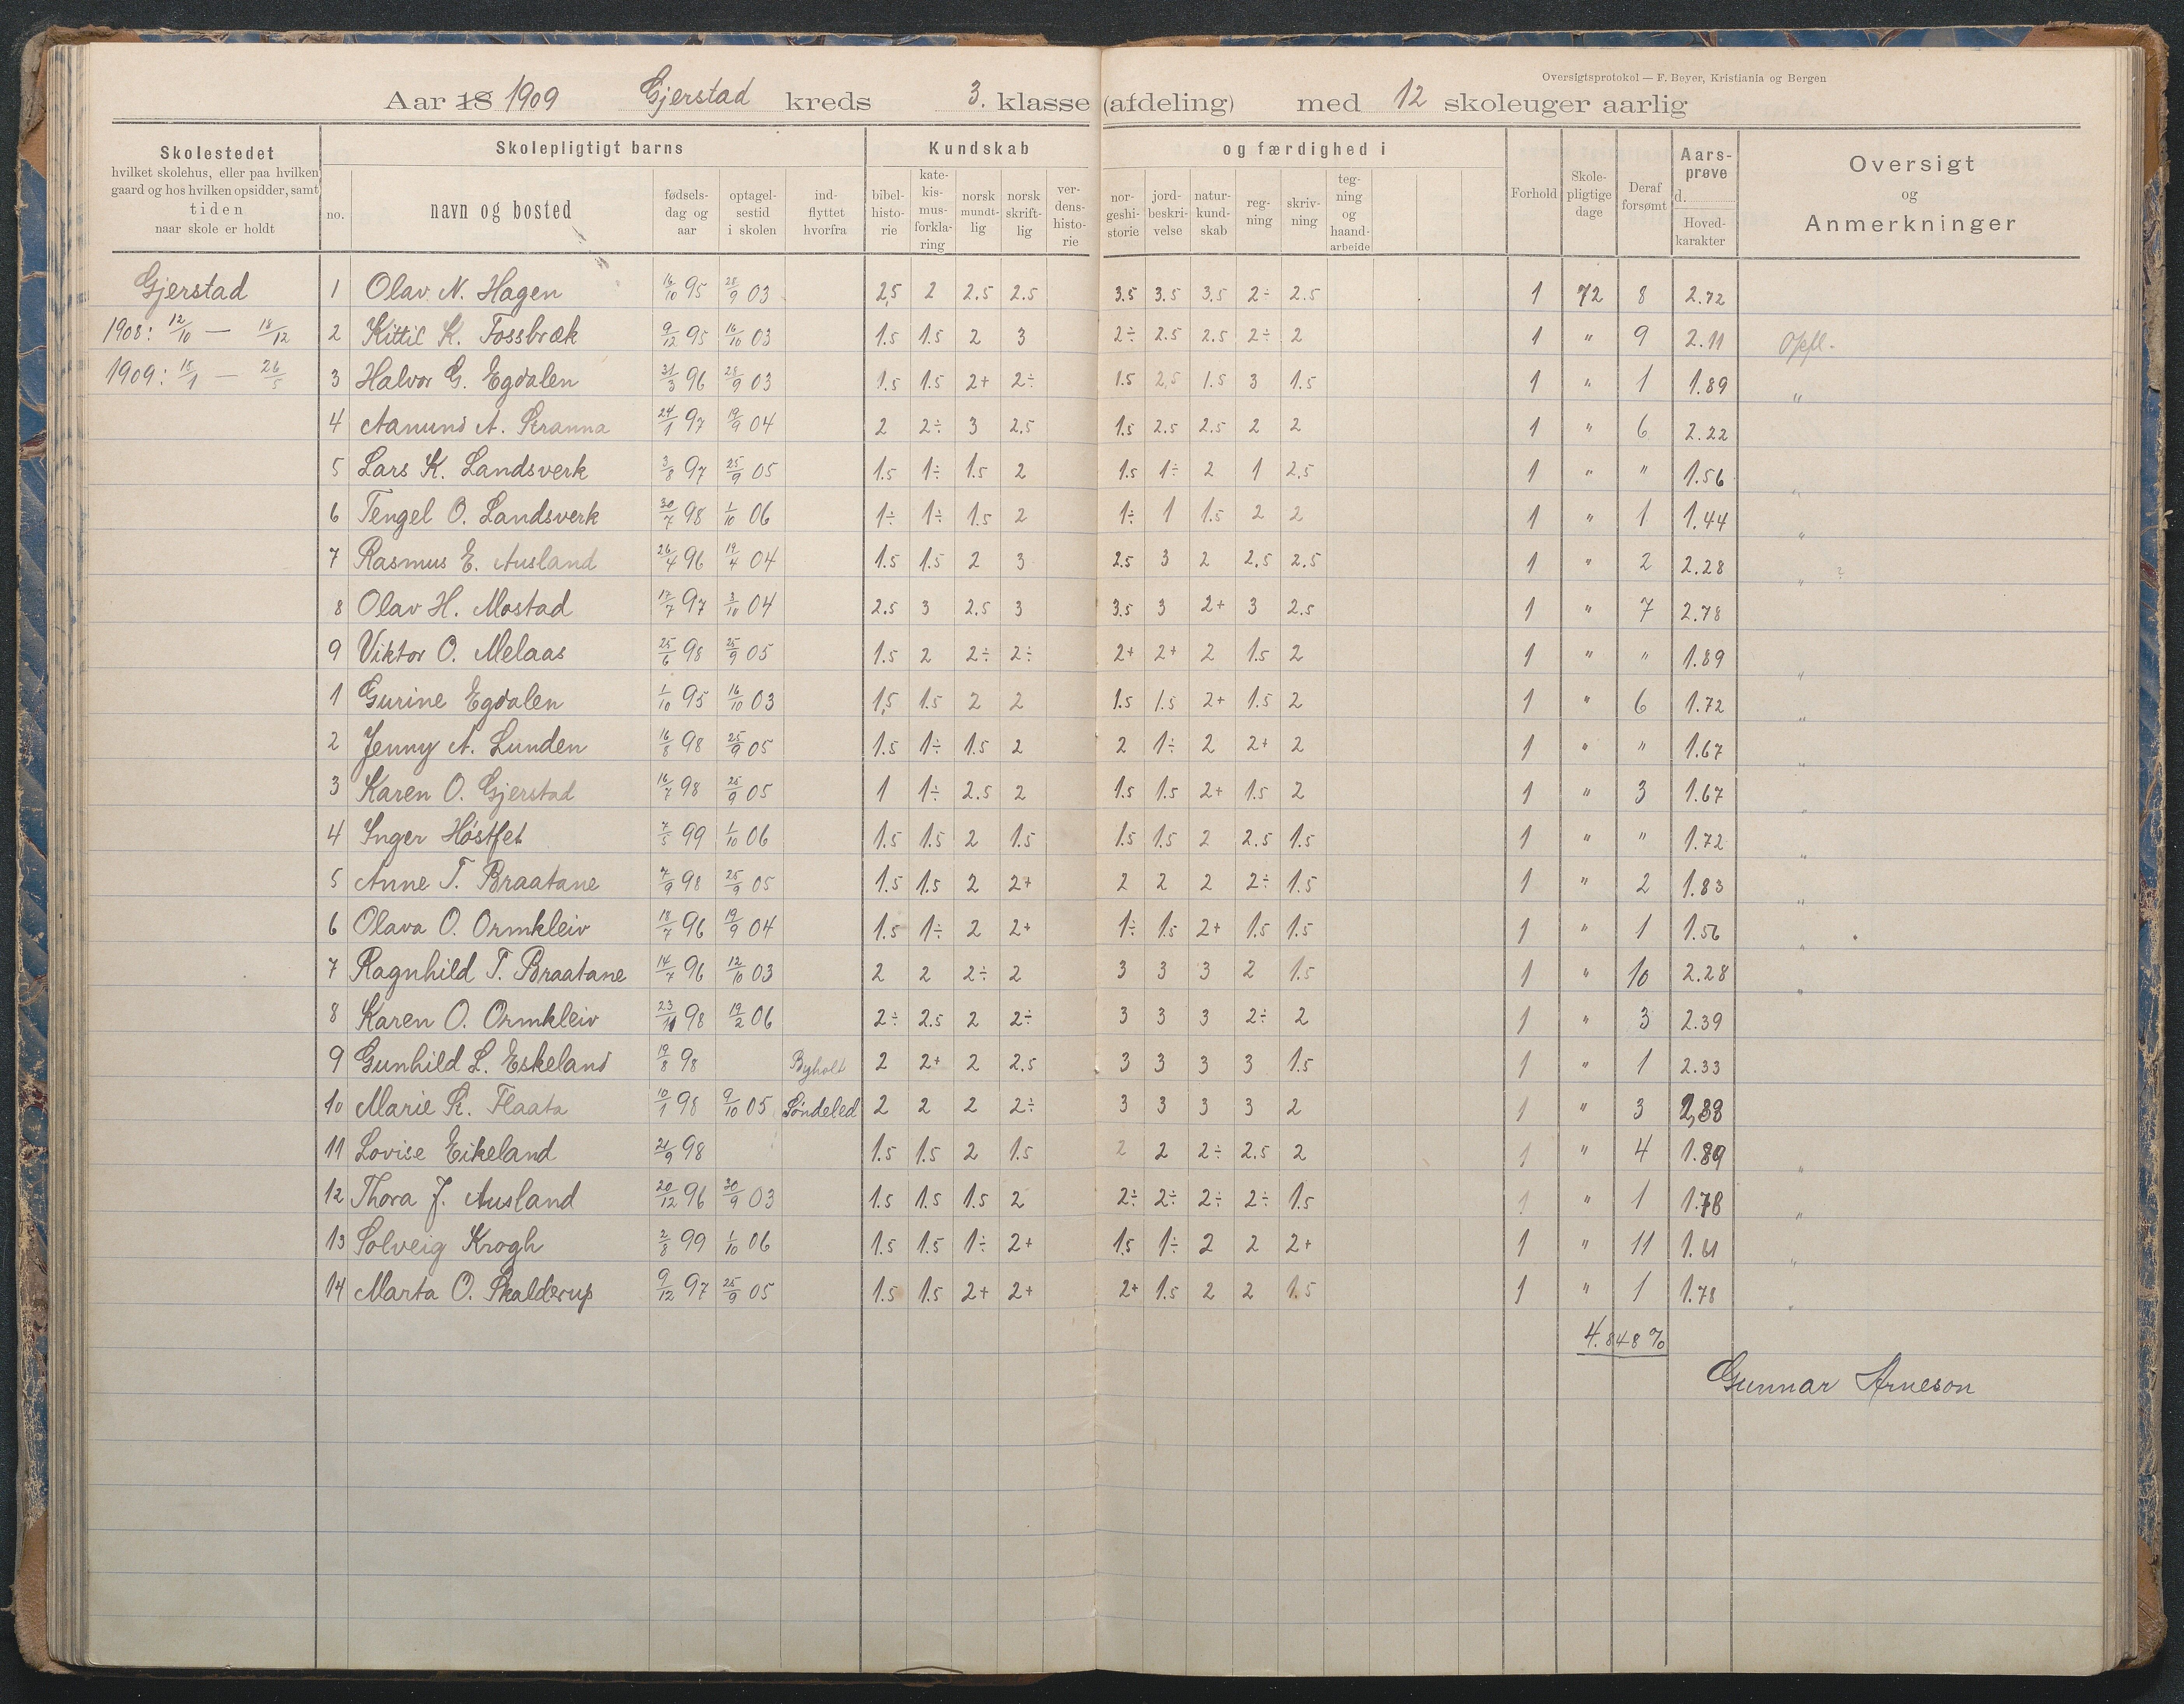 Oversigtsprotokol — F. Beyer, Kristiania og Bergen
Aar 18 1909 Gjerstad kreds 3. klasse (afdeling) med 12 skoleuger aarlig
Skolestedet hvilket skolehus, eller paa hvilken gaard og hos hvilken opsidder, samt tiden naar skole er holdt
Skolepligtigt barns
no. navn og bosted fødsels-dag og aar optagel-sestid i skolen ind-flyttet hvorfra
Kundskab og færdighed i
bibel-histo-rie kate-kis-mus-forkla-ring norsk mundt-lig norsk skrift-lig ver-dens-histo-rie nor-geshi-storie jord-beskri-velse natur-kund-skab reg-ning skriv-ning teg-ning og haand-arbeide
Forhold Skole-pligtige dage Deraf forsømt Aars-prøve d. Hoved-karakter
Oversigt og Anmerkninger
Gjerstad 1 Olav N. Hagen 16/10 95 28/9 03 2,5 2 2.5 2.5 3.5 3.5 3.5 2÷ 2.5 1 72 8 2.72
1908: 12/10 — 18/12 2 Kittil K. Fossbræk 9/12 95 16/10 03 1.5 1.5 2 3 2÷ 2.5 2.5 2÷ 2 1 " 9 2.11 Opfl.
1909: 15/1 — 26/5 3 Halvor G. Egdalen 31/3 96 28/9 03 1.5 1.5 2+ 2÷ 1.5 2,5 1.5 3 1.5 1 " 1 1.89 "
4 Aanund A. Stranna 24/1 97 19/9 04 2 2÷ 3 2.5 1.5 2.5 2.5 2 2 1 " 6 2.22
5 Lars K. Landsverk 3/8 97 25/9 05 1.5 1÷ 1.5 2 1.5 1÷ 2 1 2.5 1 " " 1.56 "
6 Tengel O. Landsverk 30/7 98 1/10 06 1÷ 1÷ 1.5 2 1÷ 1 1.5 2 2 1 " 1 1.44 "
7 Rasmus E. Ausland 26/4 96 19/4 04 1.5 1.5 2 3 2.5 3 2 2,5 2.5 1 " 2 2.28 " ?
8 Olav H. Mostad 17/7 97 3/10 04 2.5 3 2.5 3 3.5 3 2+ 3 2.5 1 " 7 2.78
9 Viktor O. Melaas 25/6 98 25/9 05 1.5 2 2÷ 2÷ 2+ 2+ 2 1.5 2 1 " " 1.89 "
1 Gurine Egdalen 1/10 95 16/10 03 1,5 1.5 2 2 1.5 1.5 2+ 1.5 2 1 " 6 1.72 "
2 Jenny A. Lunden 16/8 98 25/9 05 1.5 1÷ 1.5 2 2 1÷ 2 2+ 2 1 " " 1.67 "
3 Karen O. Gjerstad 16/7 98 25/9 05 1 1÷ 2.5 2 1.5 1.5 2+ 1.5 2 1 " 3 1.67 "
4 Inger Høstfet 7/5 99 1/10 06 1.5 1.5 2 1.5 1.5 1.5 2 2.5 1.5 1 " " 1.72 "
5 Anne T. Braatane 7/9 98 25/9 05 1.5 1.5 2 2+ 2 2 2 2÷ 1.5 1 " 2 1.83 "
6 Olava O. Ormkleiv 18/7 96 19/9 04 1.5 1÷ 2 2+ 1÷ 1.5 2+ 1.5 1.5 1 " 1 1.56 "
7 Ragnhild T. Braatane 14/7 96 12/10 03 2 2 2÷ 2 3 3 3 2 1.5 1 " 10 2.28 "
8 Karen O. Ormkleiv 23/11 98 19/2 06 2÷ 2.5 2 2÷ 3 3 3 2÷ 2 1 " 3 2.39
9 Gunhild L. Eskeland 19/8 98 Byholt 2 2+ 2 2.5 3 3 3 3 1.5 1 " 1 2.33
10 Marie K. Flaata 10/1 98 9/10 05 Søndeled 2 2 2 2÷ 3 3 3 3 2 1 " 3 2,38
11 Lovise Eikeland 21/9 98 1.5 1.5 2 1.5 2 2 2÷ 2.5 2 1 " 4 1.89 "
12 Thora J. Ausland 20/12 96 30/9 03 1.5 1.5 1.5 2 2÷ 2÷ 2÷ 2÷ 1.5 1 " 1 1.78 "
13 Solveig Krogh 2/8 99 1/10 06 1.5 1.5 1÷ 2+ 1.5 1÷ 2 2 2+ 1 " 11 1.61 "
14 Marta O. Skalderup 9/12 97 25/9 05 1.5 1.5 2+ 2+ 2+ 1.5 2 2 1.5 1 " 1 1.78 "
4.848 %
Gunnar Arneson